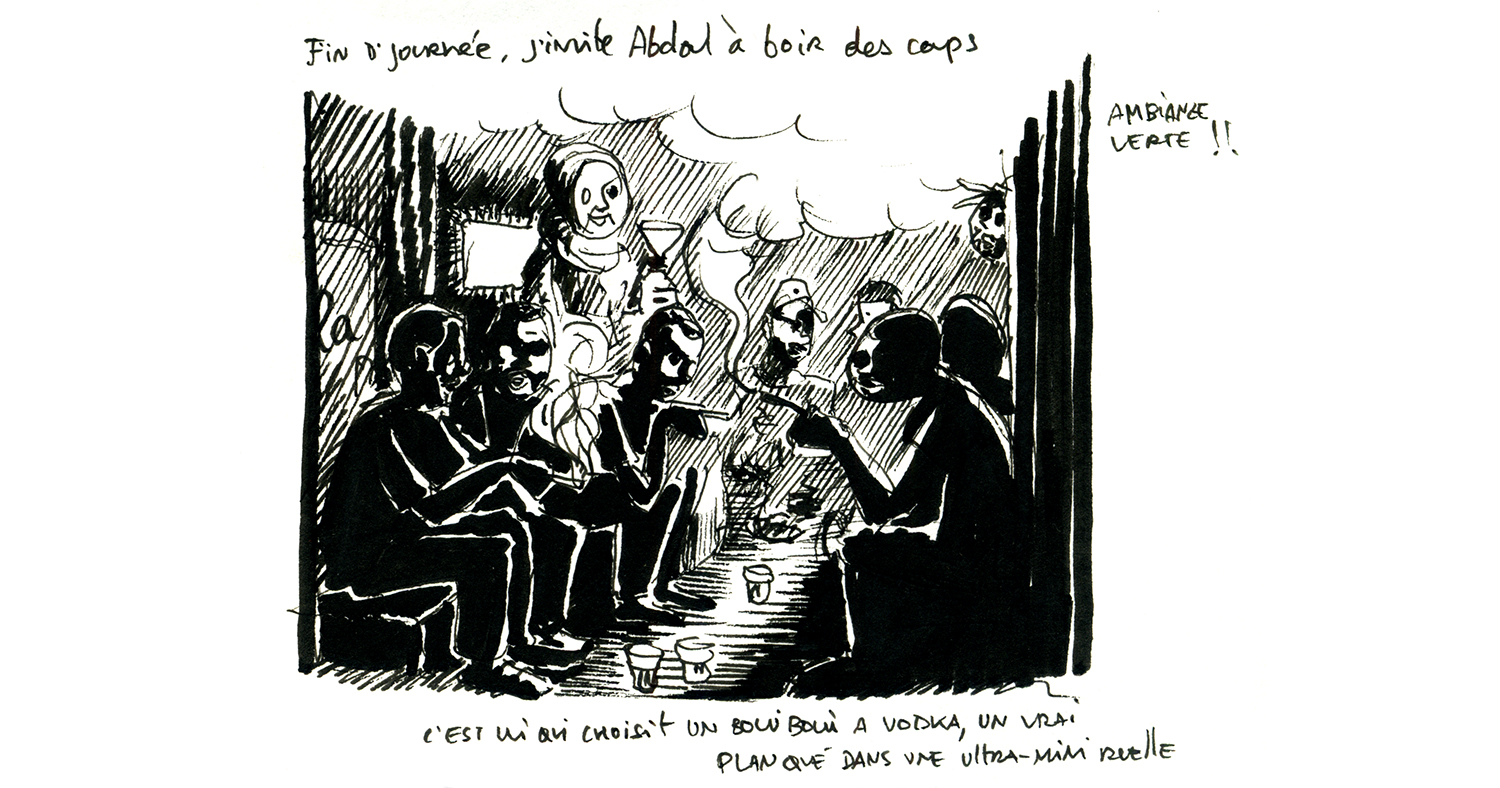 Fin d'journée, j'invite Abdoul à boir des coups
AMBIANCE
VERTE !!
la
C'EST lui qui CHOISIT UN BOUI BOUI A VODKA, UN VRAI
PLANQUÉ DANS UNE ULTRA-MINI RUELLE